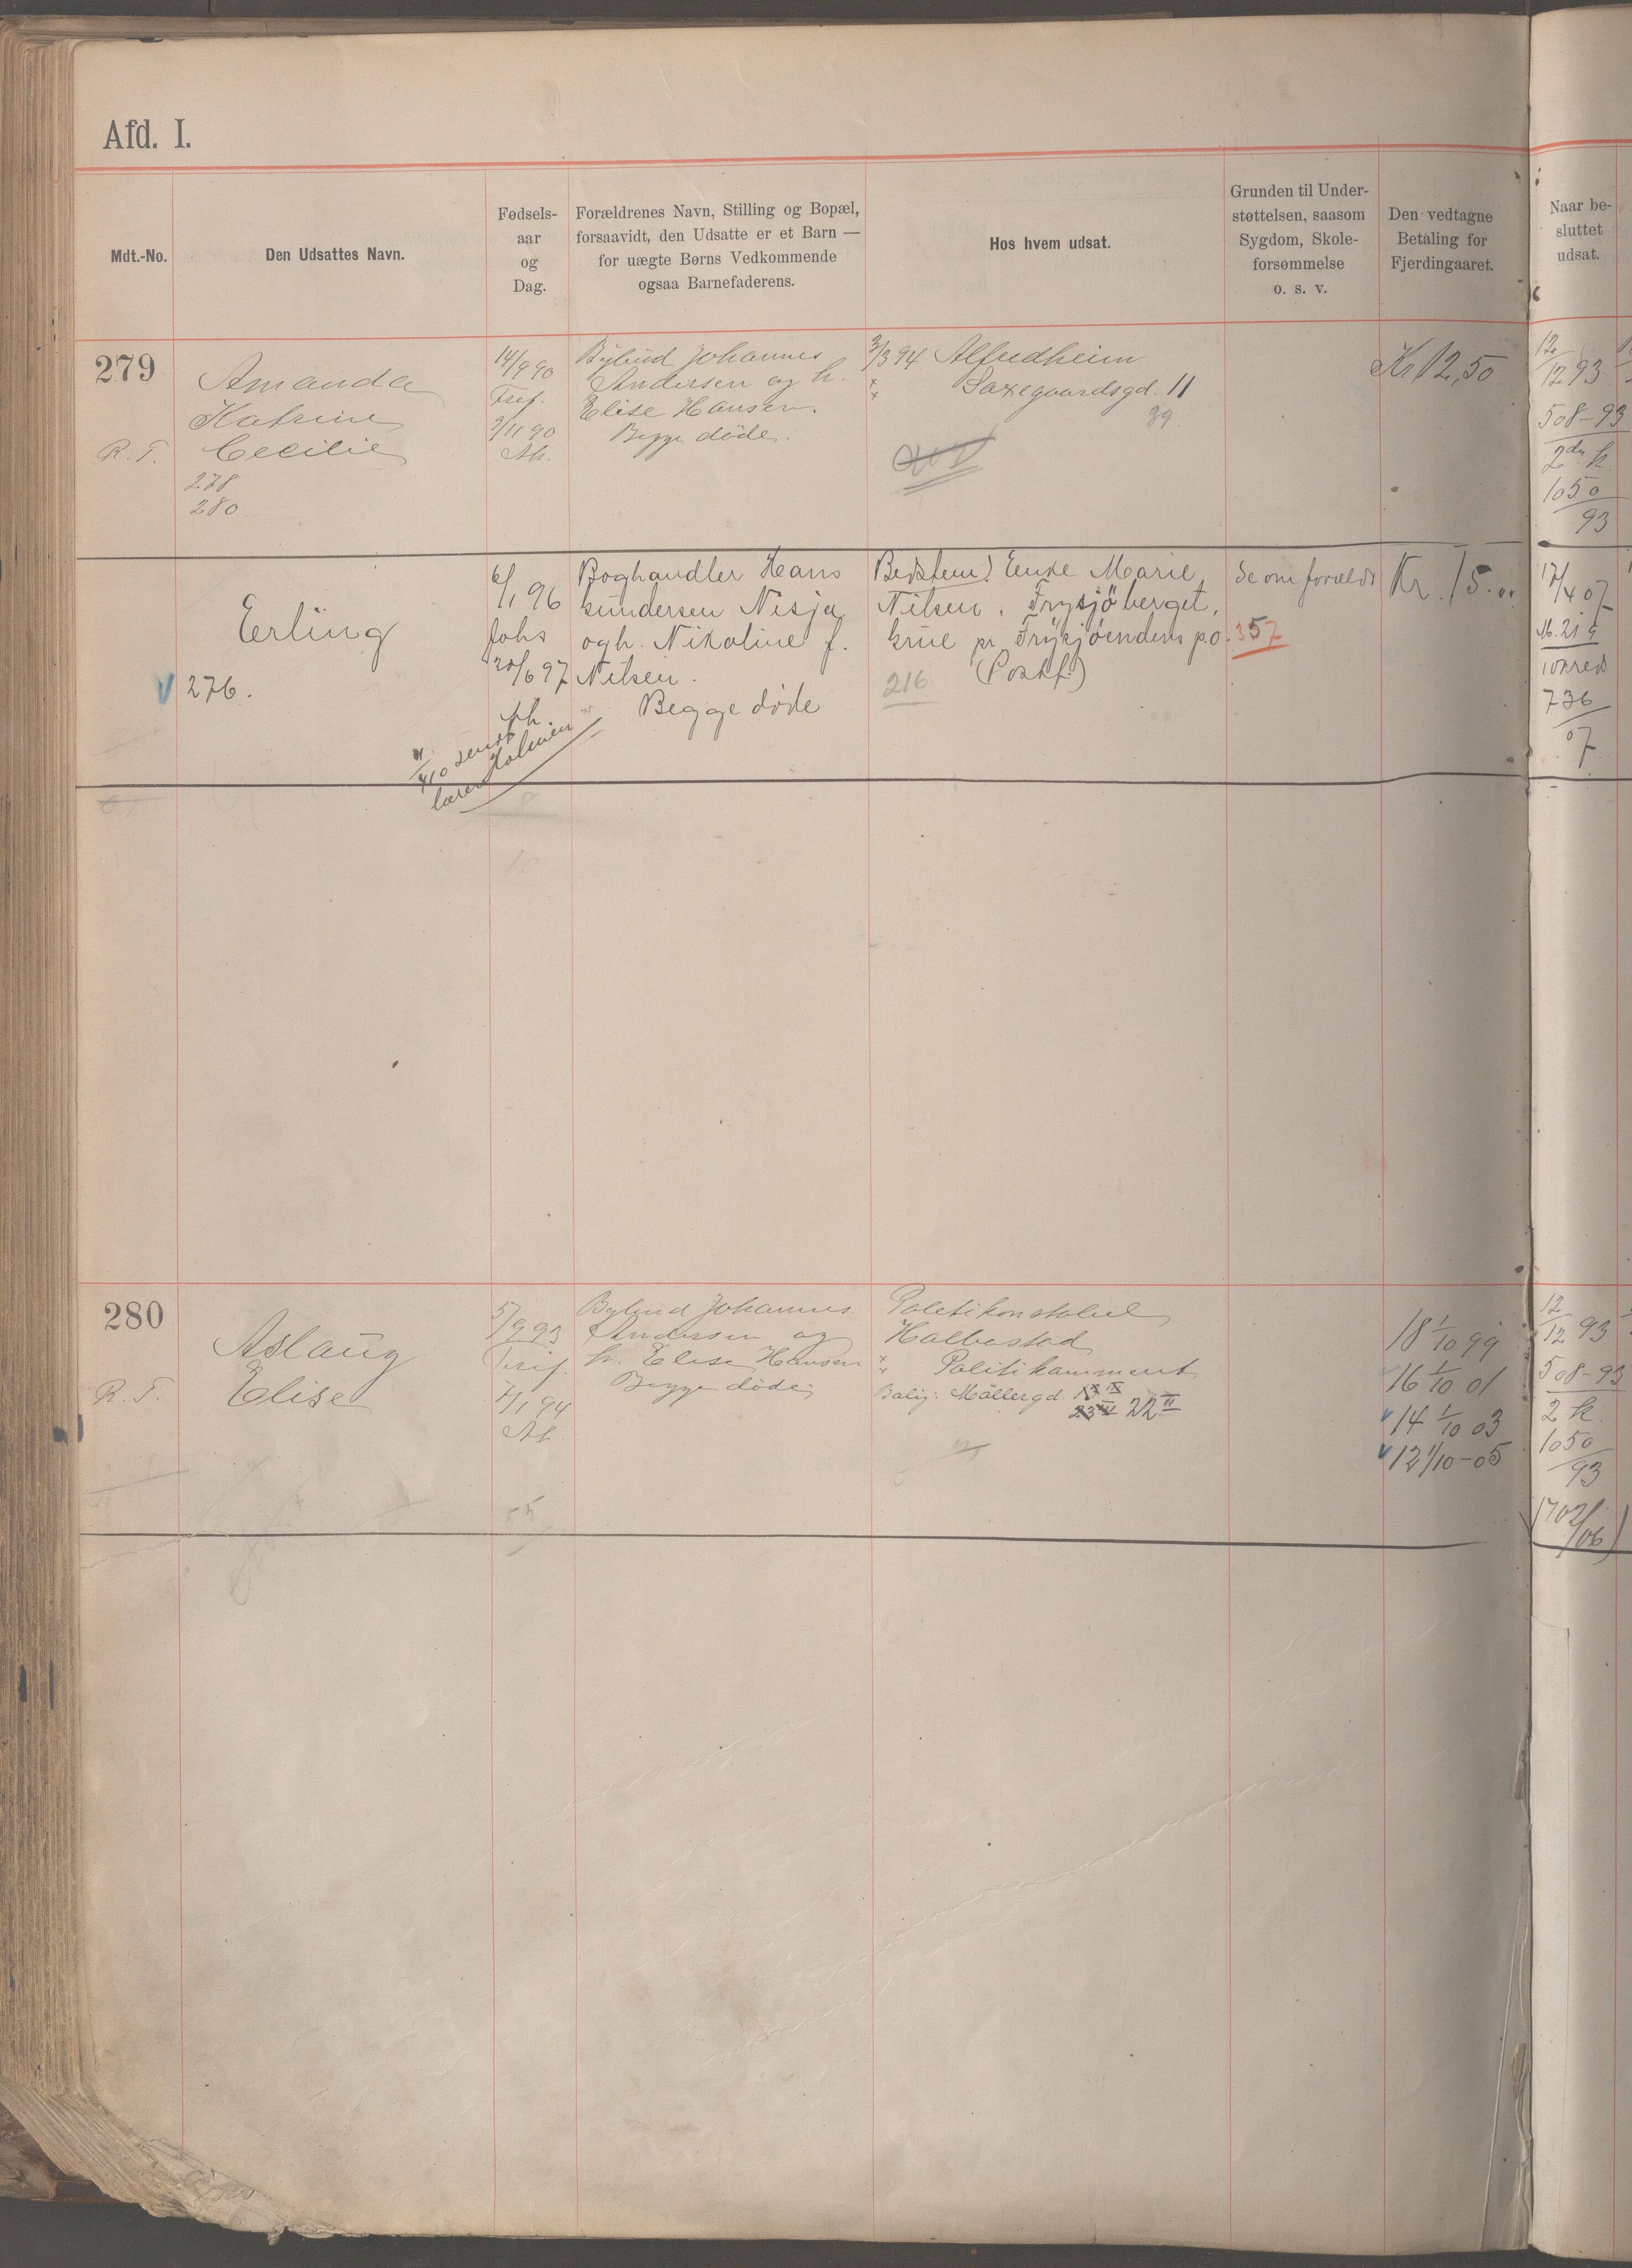 Afd. I.
Mdt.-No.
Den Udsattes Navn.
Fødsels-
aar
og
Dag.
Forældrenes Navn, Stilling og Bopæl,
forsaavidt, den Udsatte er et Barn —
for uægte Børns Vedkommende
ogsaa Barnefaderens.
Hos hvem udsat.
Grunden til Under-
støttelsen, saasom
Sygdom, Skole-
forsømmelse
o. s. v.
Den vedtagne
Betaling for
Fjerdingaaret.
Naar be-
sluttet
udsat.
279
R. T.
Amanda
Katrine
Cecilie
278
280
14/9 90
Tref.
2/11 90
Ak.
Bylund Johannes
Andersen og h.
Elise Hansen.
Begge døde.
2/3 94 Alfredheim
Saxegaardsgd. 11
39.
Kr 12,50
12/12 93
508-93
2den k
1050
93
Erling
276.
6/1 96
Johs
20/6 97
Boghandler Hans
Gundersen Nesja
og h. Nikoline f.
Nilsen.
Begge døde
Bedstem. Enke Marie
Nilsen, Frysjöberget,
Grue pr Frysjøendens p.o.
(Postf.)
216
Se om forældr
357
Kr. 15.00
17/4 07
M. 219
10kred
736
07
280
R. T.
Aslaug
Elise
5/9 93
Tref.
7/1 94
Ak.
Bylund Johannes
Andersen og
h. Elise Hansen
Begge døde
Politikonstabel
Halbostad
Politikammeret
Bolig: Møllergd.
23 III 22 II
18 1/10 99
16 1/10 01
14 1/10 03
12 1/10-05
12/12 93
508-93
2 k.
1050
93
(702/06)